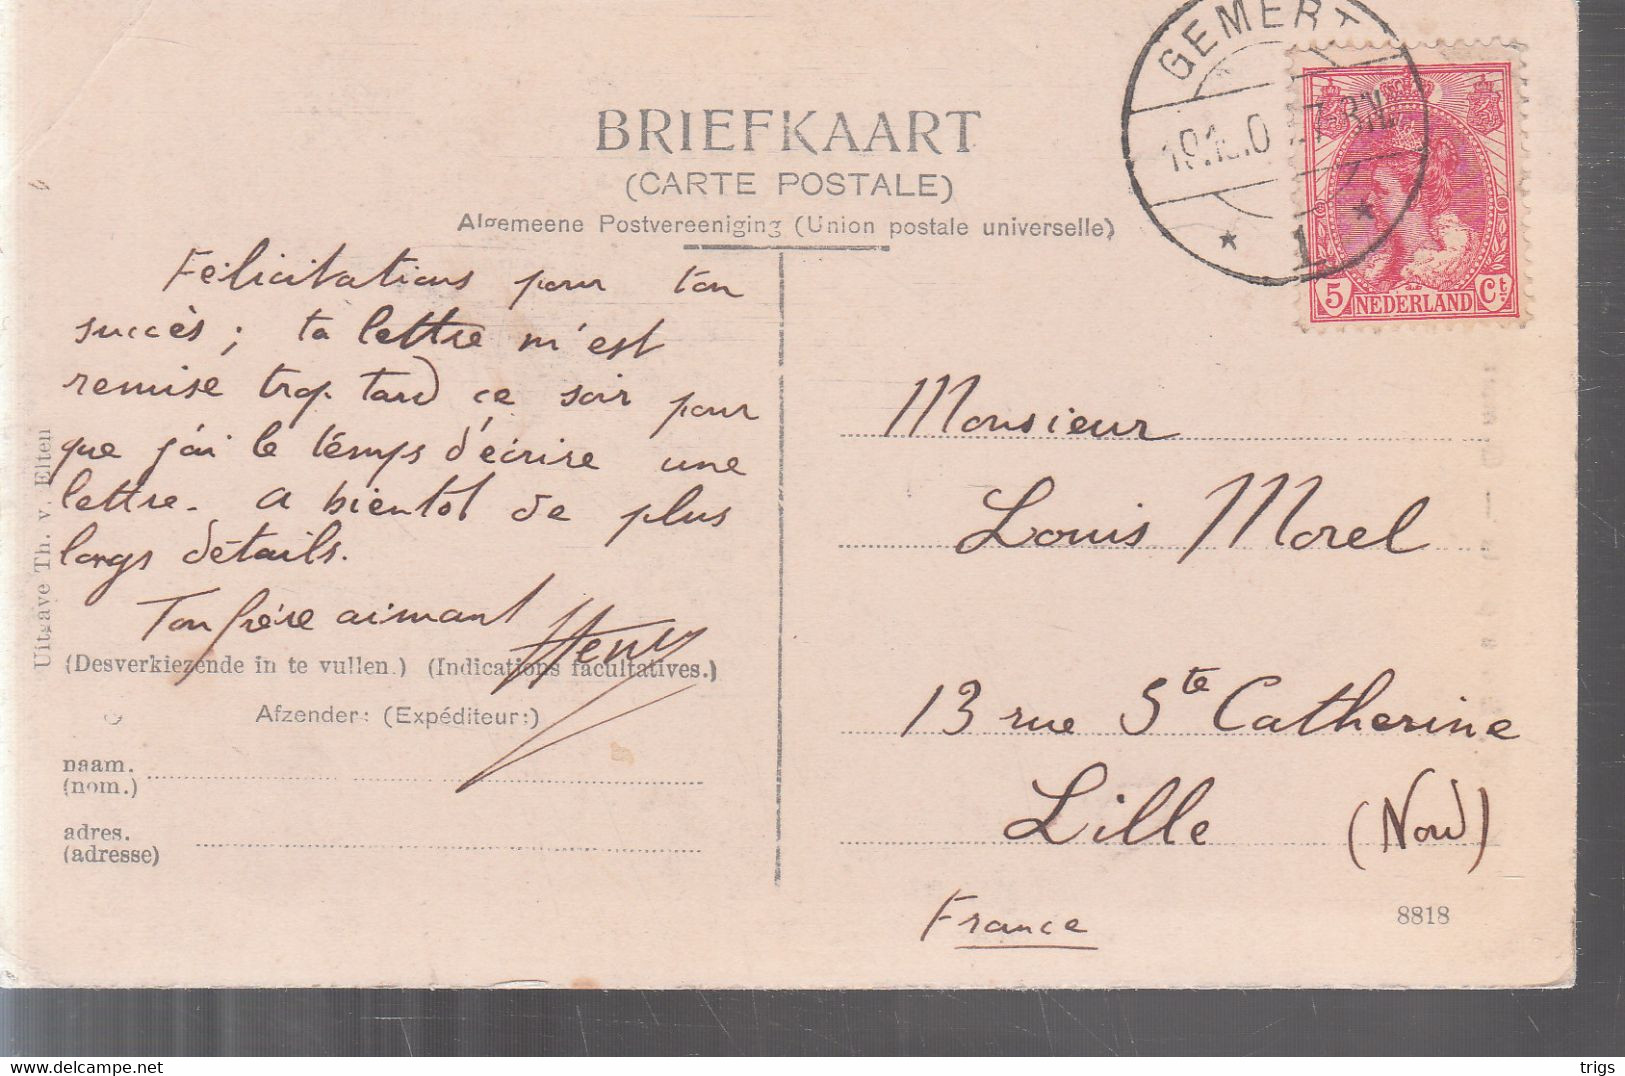 BRIEFKAART
(CARTE POSTALE)
Algemeene Postvereeniging (Union postale universelle)
GEMERT
7-8N.
1
5 NEDERLAND Ct.
Félicitations pour ton
succès; ta lettre m'est
remise trop tard ce soir pour
que j'ai le temps d'écrire une
lettre. A bientôt de plus
longs détails.
Ton frère aimant
Henry
(Desverkiezende in te vullen.) (Indications facultatives.)
Afzender: (Expéditeur:)
naam.
(nom.)
adres.
(adresse)
Uitgave Th. v. Elten
Monsieur
Louis Morel
13 rue Ste Catherine
Lille (Nord)
France
8818
www.delcampe.net
trigs